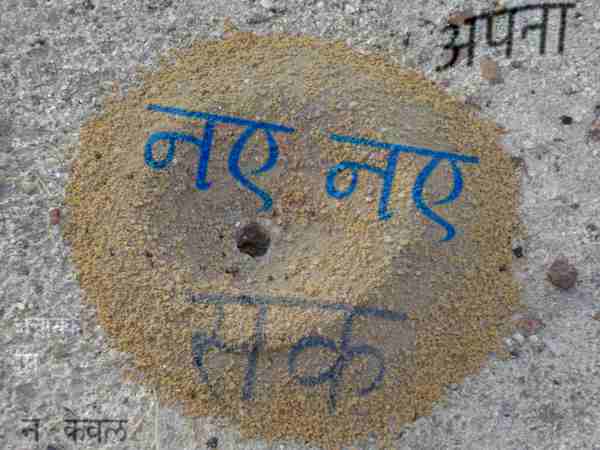 अपना
नए नए
सक
न केवल